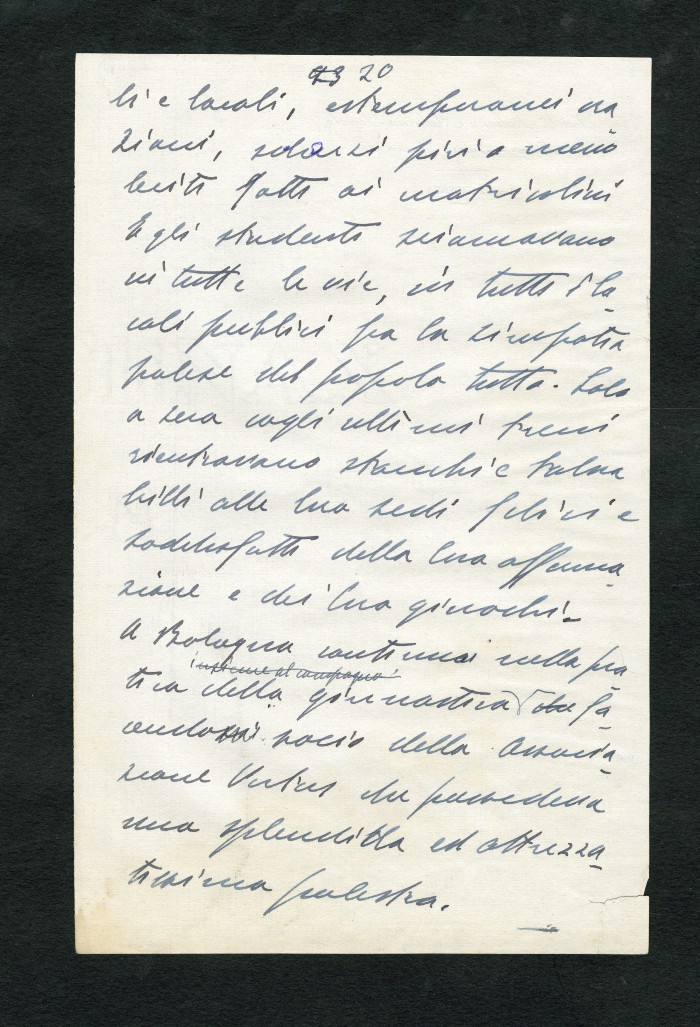 20
li e locali, estemporanei ora
zioni, scherzi più o meno
leciti fatti ai matricolini
E gli studenti sciamavano
in tutte le vie, in tutti i lo_
cali pubblici fra la simpatia
palese del popolo tutto. Solo
a sera cogli ultimi treni
rientravano stanchi e talora
brilli alle loro sedi felici e
soddisfatti della loro afferma_
zione e dei loro ginochi_
A Bologna continuai nella pra_
insieme al compagno
tica della ginnastica che fa_
cendomi socio della Associa_
zione Virtus che possedeva
una splendida ed attrezza_
tissima palestra.